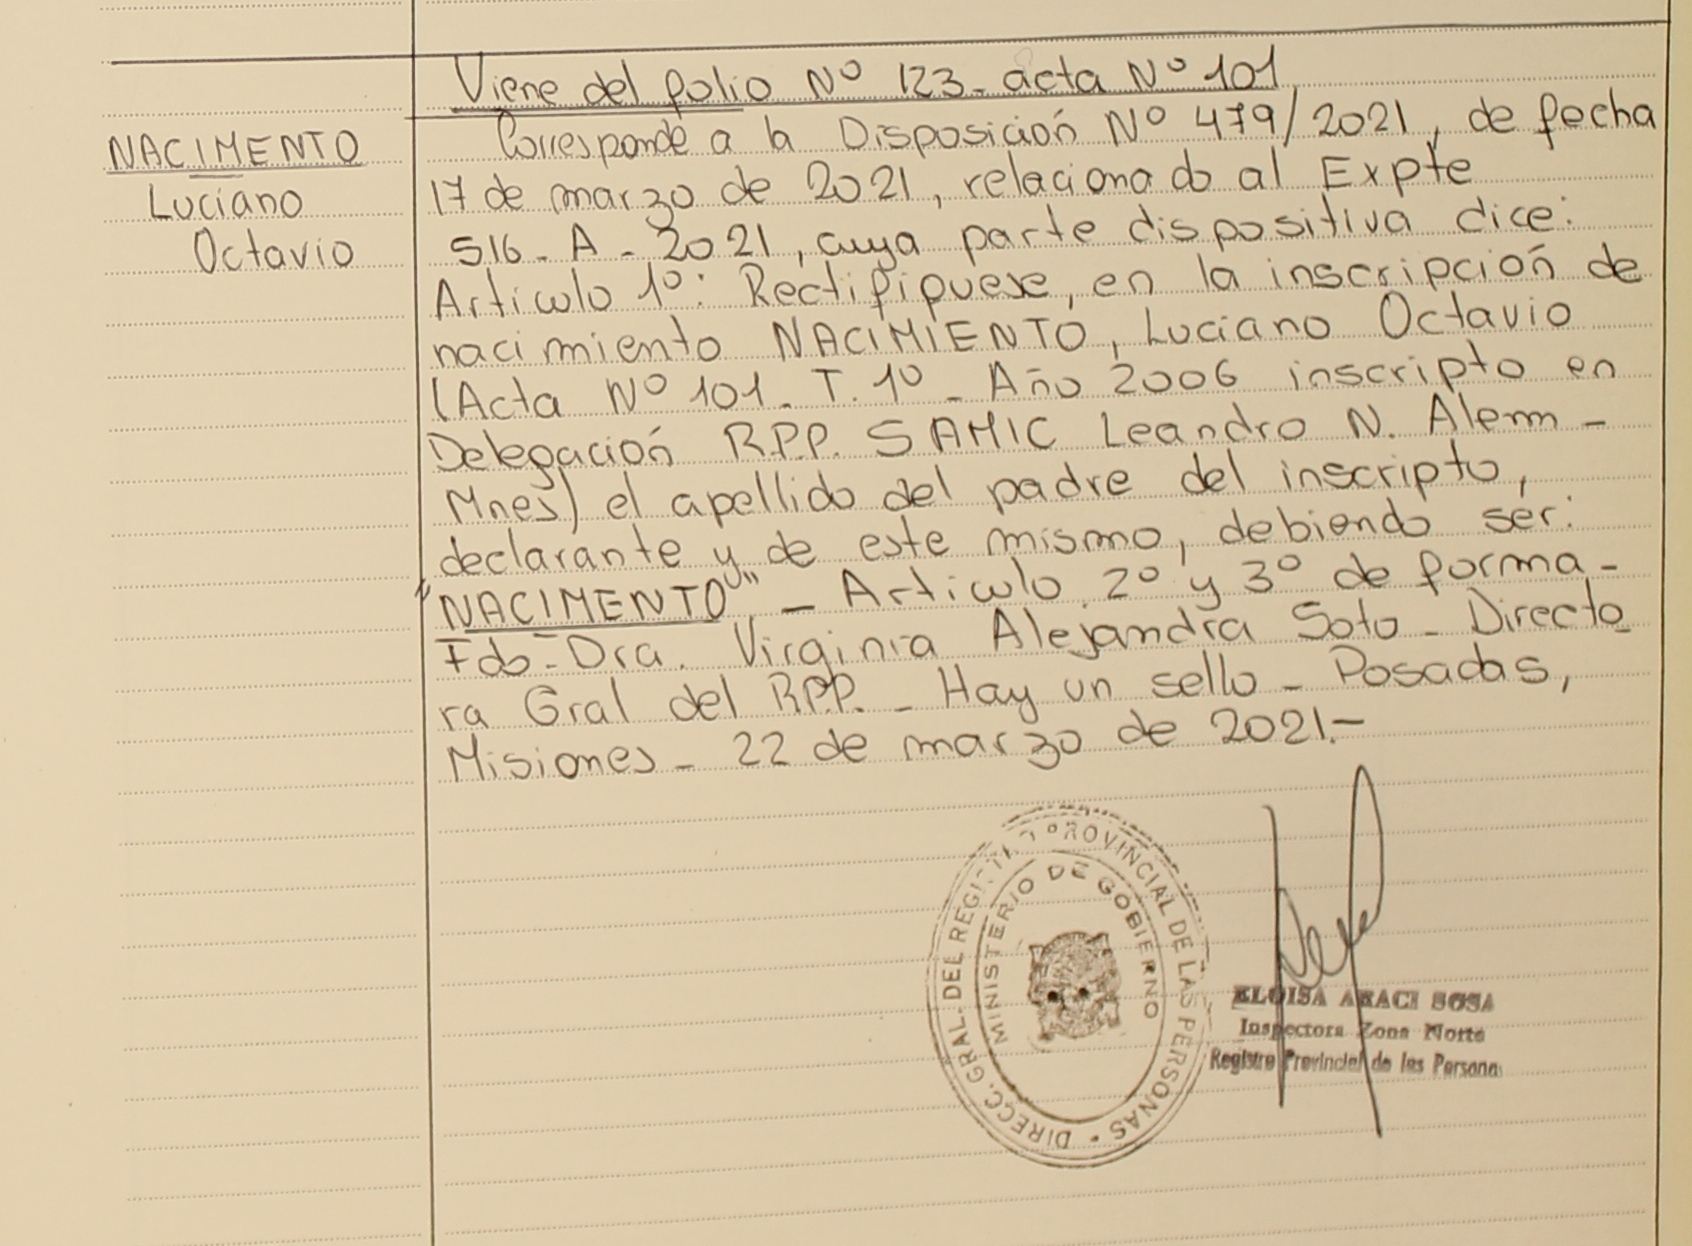 Viene del folio Nº 123_ acta Nº 101
NACIMENTO
Luciano
Octavio
Corresponde a la Disposición Nº 479/2021, de fecha
17 de marzo de 2021, relacionado al Expte
516_ A _ 2021, cuya parte dispositiva dice:
Artículo 1º: Rectifíquese, en la inscripción de
nacimiento NACIMIENTO, Luciano Octavio
(Acta Nº 101_ T. 1º _ Año 2006 inscripto en
Delegación R.P.P. SAMIC Leandro N. Alem _
Mnes) el apellido del padre del inscripto,
declarante y de este mismo, debiendo ser:
"NACIMENTO" _ Artículo 2º y 3º de forma _
Fdo_ Dra. Virginia Alejandra Soto _ Directo
ra Gral del R.P.P. _ Hay un sello _ Posadas,
Misiones _ 22 de marzo de 2021.-
DIRECC. GRAL. DEL REGISTRO PROVINCIAL DE LAS PERSONAS •
MINISTERIO DE GOBIERNO
ELOISA ARACI SOSA
Inspectora Zona Norte
Registro Provincial de las Personas